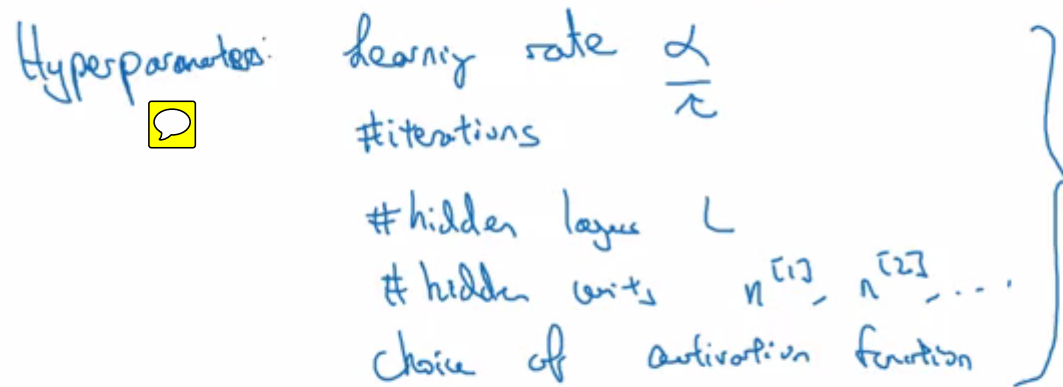 Hyperparameters: Learning rate α
#iterations
#hidden layers L
#hidden units n^[1], n^[2], ....
Choice of activation function